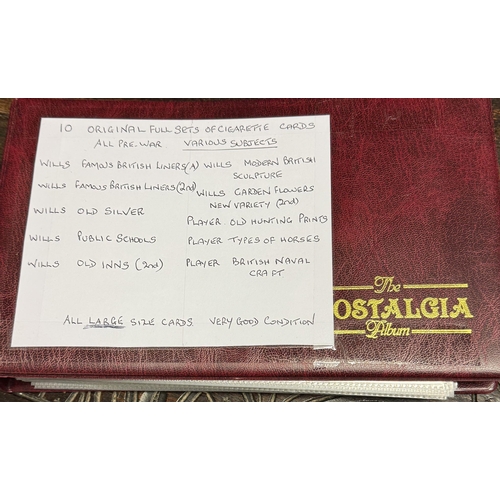 10 ORIGINAL FULL SETS OF CIGARETTE CARDS
ALL PRE.WAR VARIOUS SUBJECTS
WILLS FAMOUS BRITISH LINERS (A)
WILLS FAMOUS BRITISH LINERS (2nd)
WILLS OLD SILVER
WILLS PUBLIC SCHOOLS
WILLS OLD INNS (2nd)
WILLS MODERN BRITISH
SCULPTURE
WILLS GARDEN FLOWERS
NEW VARIETY (2nd)
PLAYER OLD HUNTING PRINTS
PLAYER TYPES OF HORSES
PLAYER BRITISH NAVAL
CRAFT
ALL LARGE SIZE CARDS VERY GOOD CONDITION
The
OSTALGIA
Album